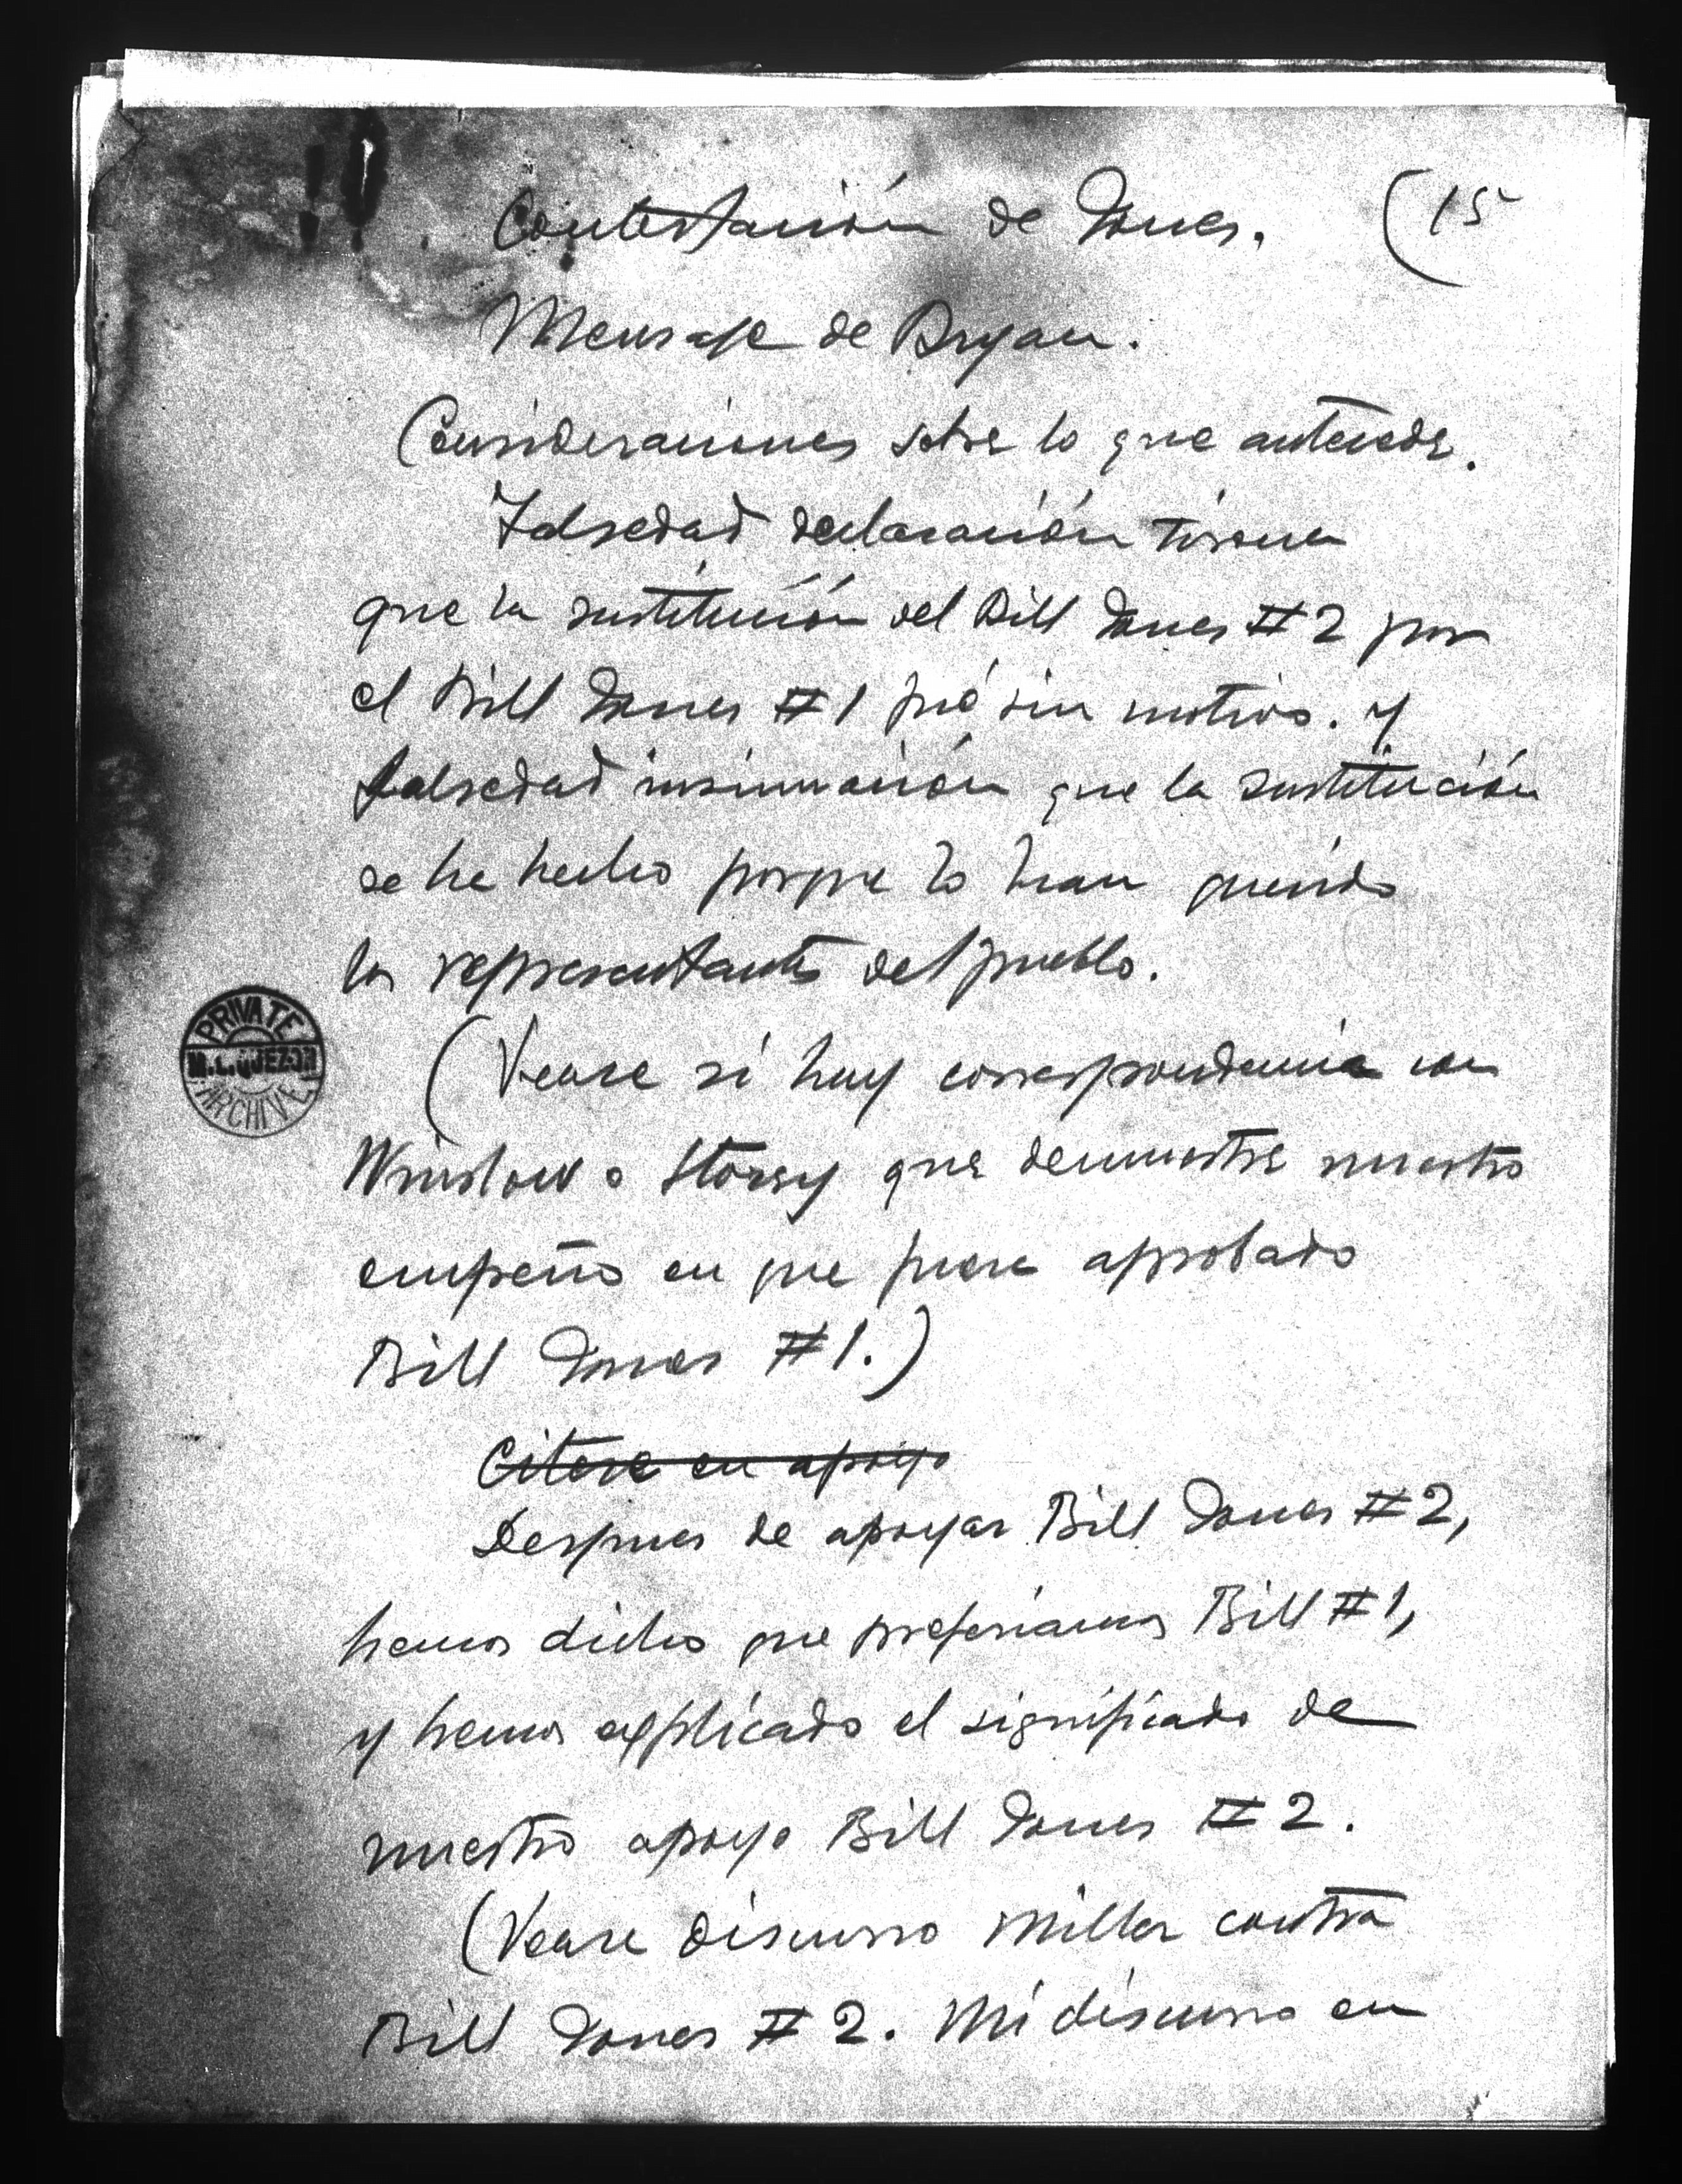 Contestación de Jones. (15
Mensaje de Bryan.
Consideraciones sobre lo que antecede.
Falsedad declaración Tirona
que la sustitución del Bill Jones #2 por
el Bill Jones #1 fué sin motivo. Y
falsedad insinuación que la sustitución
se ha hecho porque lo han querido
los representantes del pueblo.
(Vease si hay correspondencia con
Winslow o Storey que demuestre nuestro
empeño en que fuera aprobado
Bill Jones #1.)
Citese en apoyo
Despues de apoyar Bill Jones #2,
hemos dicho que preferiamos Bill #1,
y hemos explicado el significado de
nuestro apoyo Bill Jones #2.
(Vease discurso Miller contra
Bill Jones #2. Mi discurso en
PRIVATE
M.L. QUEZON
ARCHIVE